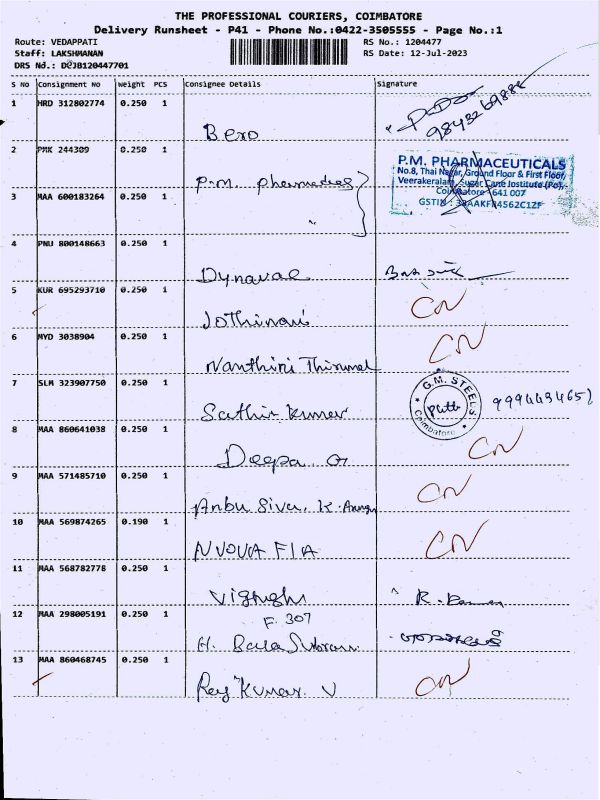 THE PROFESSIONAL COURIERS, COIMBATORE
Delivery Runsheet - P41 - Phone No.:0422-3505555 - Page No.:1
Route: VEDAPPATI RS No.: 1204477
Staff: LAKSHMANAN RS Date: 12-Jul-2023
DRS No.: DCJB120447701
S No Consignment No Weight PCS Consignee Details Signature
1 HRD 312802774 0.250 1
Bero
2 PMK 244309 0.250 1
P.M. PHARMACEUTICALS
No.8, Thai Nagar, Ground Floor & First Floor,
Veerakeralam, Sugar Cane Institute (Po),
Coimbatore - 641 007
GSTIN : 33AAKFP4562C1ZF
P.M.
3 MAA 600183264 0.250 1
"
4 PNU 800148663 0.250 1
5 KUR 695293710 0.250 1
CN
6 MYD 3038904 0.250 1
CN
Nanthini
7 SLM 323907750 0.250 1
G.M. STEELS
Coimbatore
Sathis Kumar
8 MAA 860641038 0.250 1
Deepa G CN
9 MAA 571485710 0.250 1
CN
Anbu Siva. K.
10 MAA 569874265 0.190 1
NUOVA FIA CN
11 MAA 568782778 0.250 1
R.
12 MAA 298005191 0.250 1
F. 307
H. Bala
13 MAA 860468745 0.250 1
Raj Kumar V CN